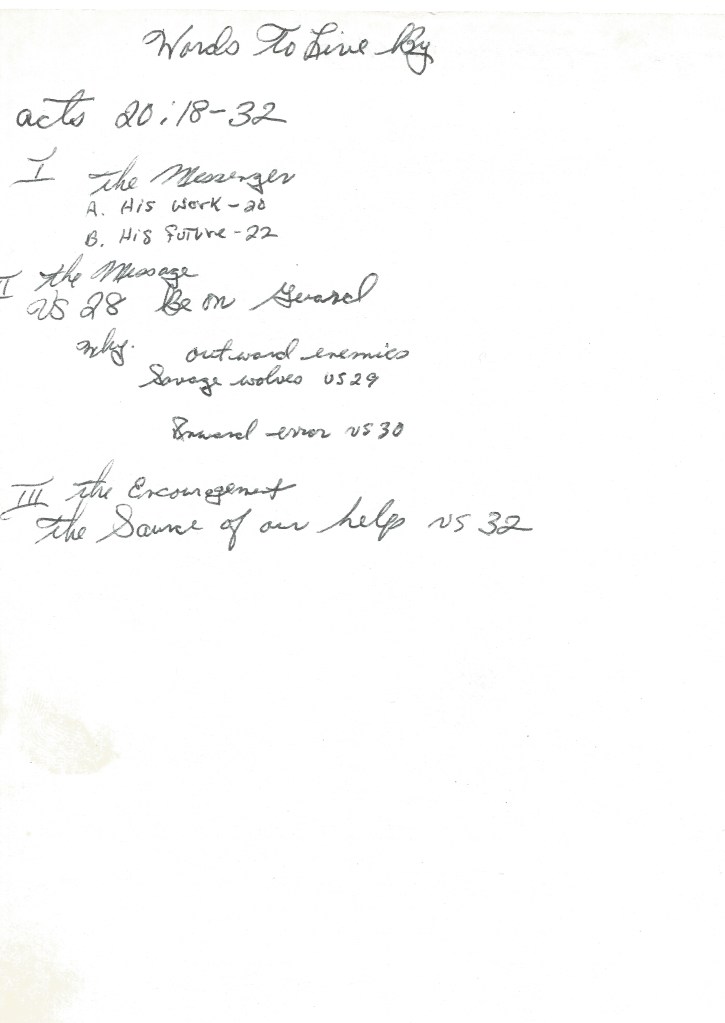 Words To Live By
acts 20:18-32
I the Messenger
A. His Work-20
B. His Future-22
II the Message
VS 28 Be on Guard
why. outward enemies
Savage wolves vs 29
Inward error vs 30
III the Encouragement
the Source of our help vs 32